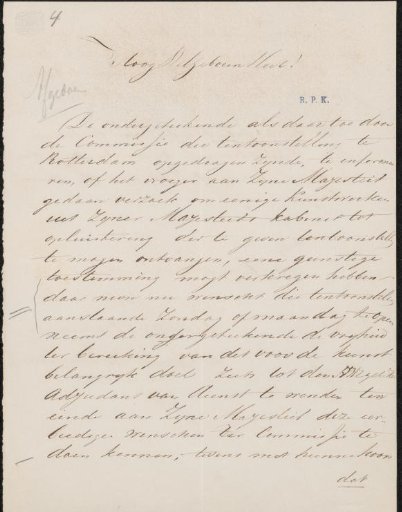 4
Hoog Welgeboren Heer!
Afgedaan
R. P. K.
De ondergeteekende als daar toe door
de Commissie der tentoonstelling te
Rotterdam opgedragen zynde, te informe
ren, of het vroeger aan Zyne Majesteit
gedaan verzoek om eenige kunstwerken
uit Zyner Majesteits kabinet tot
opluistering der te geven tentoonstell
te mogen ontvangen, eene gunstige
toestemming mogt verkregen hebben
daar men nu wenscht die tentoonstell
aanstaande Zondag of maandag te open
neemt de ondergeteekende de vryheid
ter bereiking van dit voor de kunst
belangryk doel zich tot den
Adjudant van dienst te wenden ten
einde aan Zyne Majesteit deze eer
biedige wenschen der Commissie te
doen kennen, tevens met hunne hoop
dat